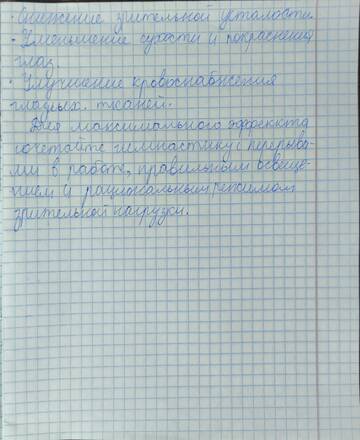 • Снижение зрительной усталости.
• Уменьшение сухости и покраснения
глаз.
• Улучшение кровоснабжения
глазных тканей.
Для максимального эффекта
сочетайте гимнастику с переры­ва-
ми в работе, правильным освеще-
нием и рациональным режимом
зрительной нагрузки.